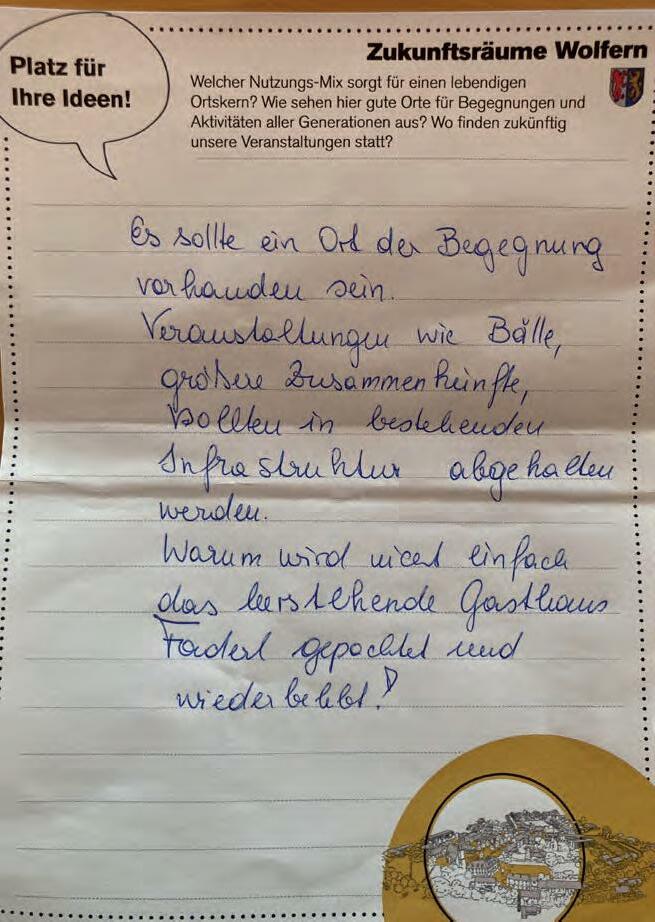 Platz für
Ihre Ideen!
Zukunftsräume Wolfern
Welcher Nutzungs-Mix sorgt für einen lebendigen
Ortskern? Wie sehen hier gute Orte für Begegnungen und
Aktivitäten aller Generationen aus? Wo finden zukünftig
unsere Veranstaltungen statt?
Es sollte ein Ort der Begegnung
vorhanden sein.
Veranstaltungen wie Bälle,
größere Zusammenkünfte,
sollten in bestehenden
Infrastruktur abgehalten
werden.
Warum wird nicht einfach
das leerstehende Gasthaus
Faderl gepachtet und
wiederbelebt!